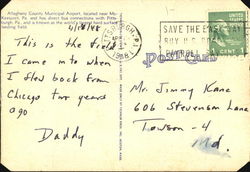 Allegheny County Municipal Airport, located near Mc-
Keesport, Pa. and has direct bus connections with Pitts-
burgh, Pa., and is known as the world's largest hard surface
landing field.
This is the field
I came into when
I flew back from
Chicago two years
ago
Daddy
PITTSBURGH, PA.
SAVE THE EASY WAY
BUY U.S. BONDS
PAYROLL
1 CENT 1
POST CARD
Mr. Jimmy Kane
606 Stevenson Lane
Towson - 4
Md.